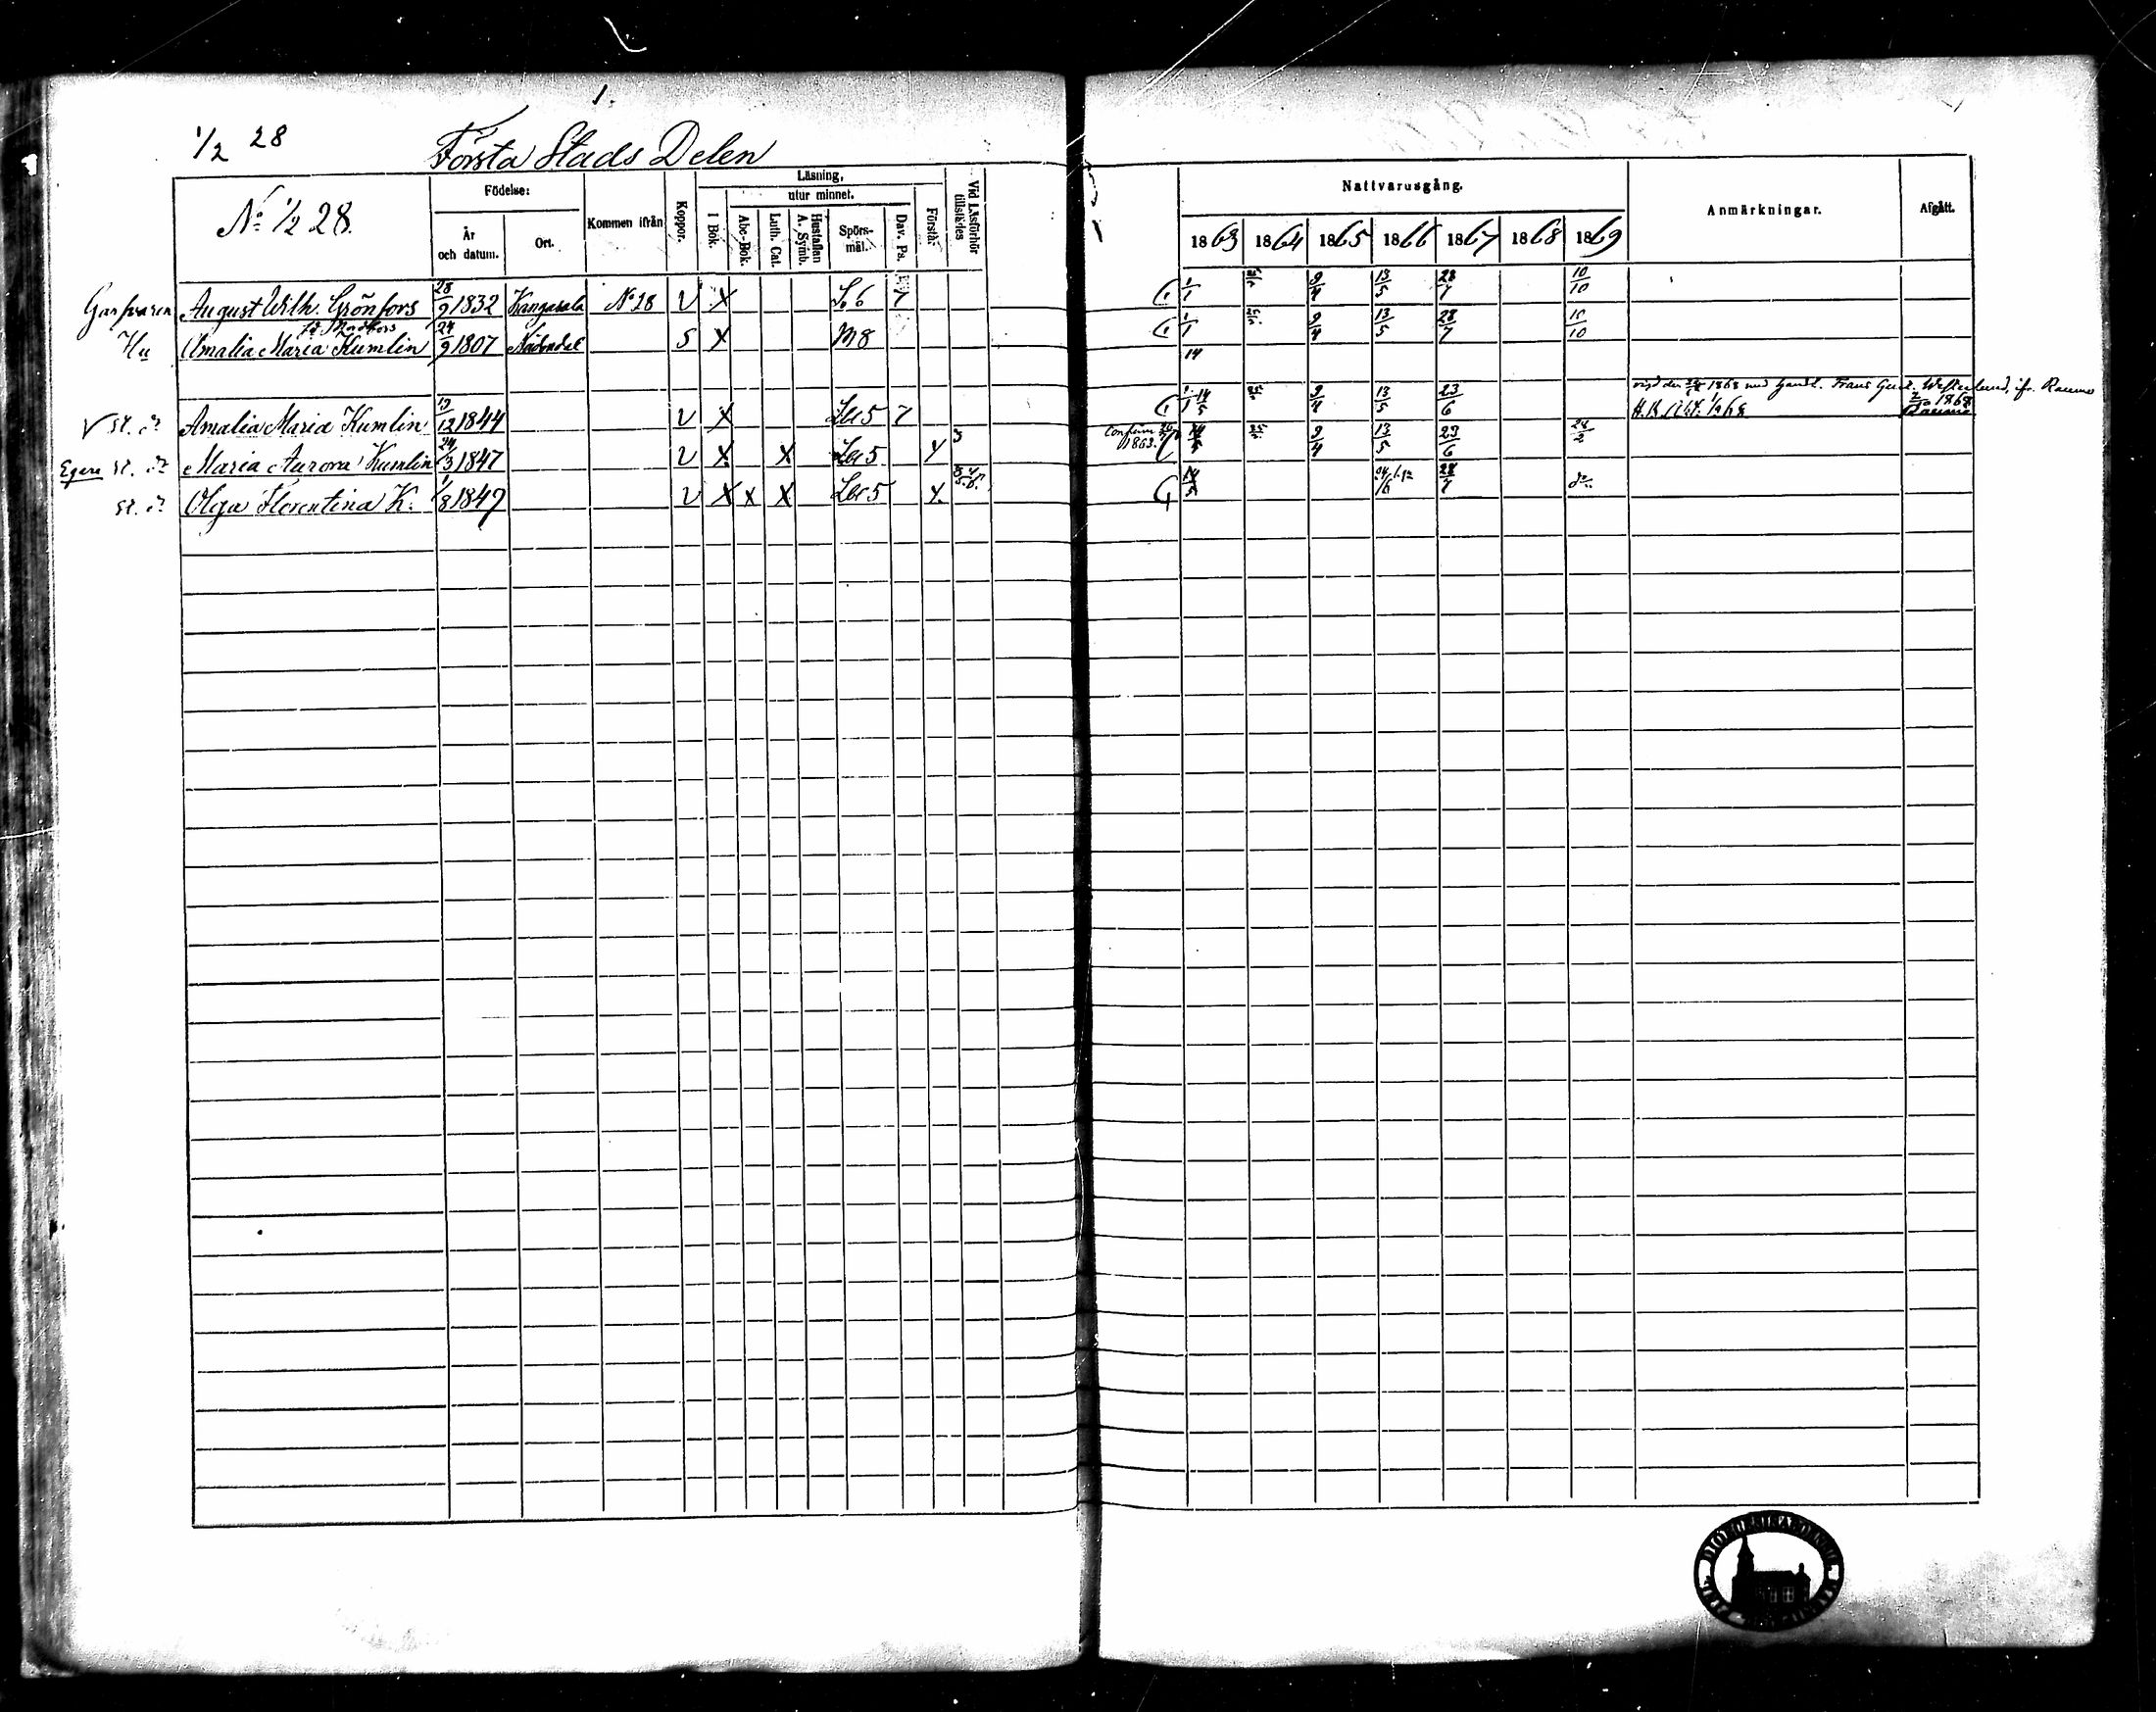 1.
1/2 28 Första Stads Delen
No 1/2 28. Födelse: År och datum. Ort. Kommen ifrån Koppor. Läsning, I Bok. utur minnet. Abc-Bok. Luth. Cat. Hustaflan A. Symb. Spörs-mål. Dav. Ps. Förstår Vid Läsförhör tillstädes Nattvarusgång. 1863 1864 1865 1866 1867 1868 1869 Anmärkningar. Afgått.
Garfvaren August Wilh. Grönfors 28/9 1832 Kangasala No 28 v X 7 1/1 9/4 13/5 28/7 10/10
Hu Amalia Maria Kumlin 24/9 1807 Nådendal S X M 8 1/1 9/4 13/5 28/7 10/10
14
st. d. Amalia Maria Kumlin 13/12 1844 v X 5 7 1/1 14/5 9/4 13/5 23/6 1868 Frans Westerlund, ifr. Raumo
1868 Raumo
Egare st. dr Maria Aurora Kumlin 24/3 1847 v X X 5 Y 3 Confirm 1863. 9/4 13/5 23/6 24/2
st. d. Olga Florentina K. 1/8 1849 v X x X 5 Y. 28/7 do